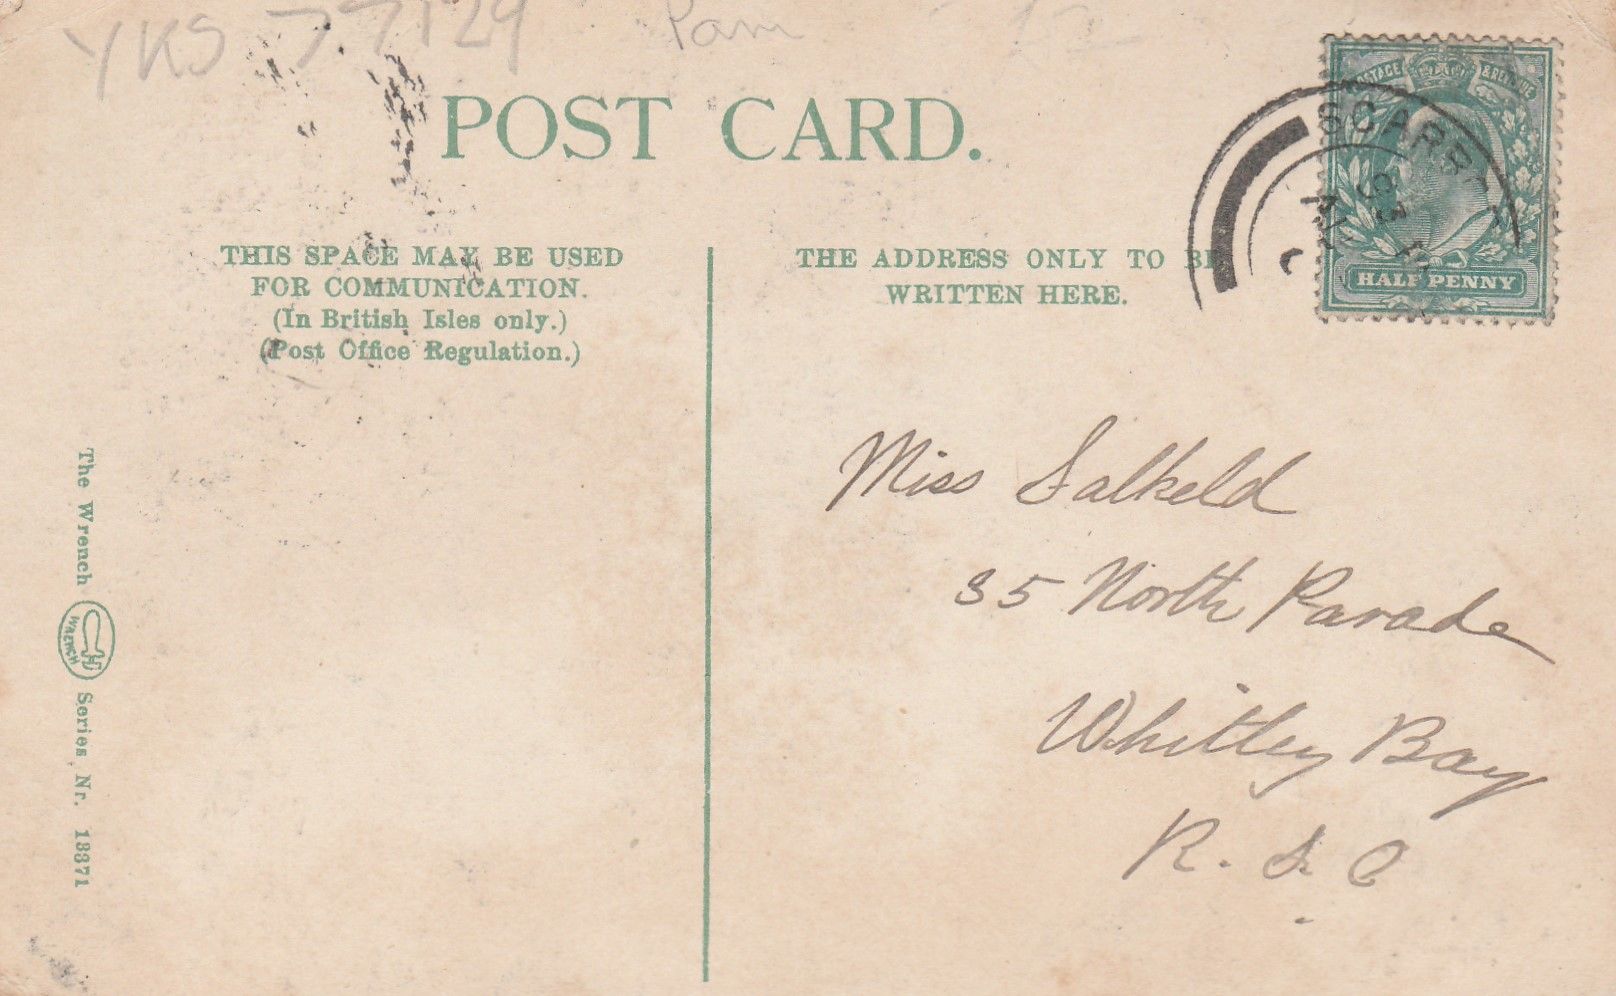 YKS 77129
Pam
£2
POST CARD.
POSTAGE & REVENUE
HALF PENNY
THIS SPACE MAY BE USED
FOR COMMUNICATION.
(In British Isles only.)
(Post Office Regulation.)
THE ADDRESS ONLY TO BE
WRITTEN HERE.
Miss Salkeld
35 North Parade
Whitley Bay
R. S. O
The Wrench WRENCH Series, Nr. 13371